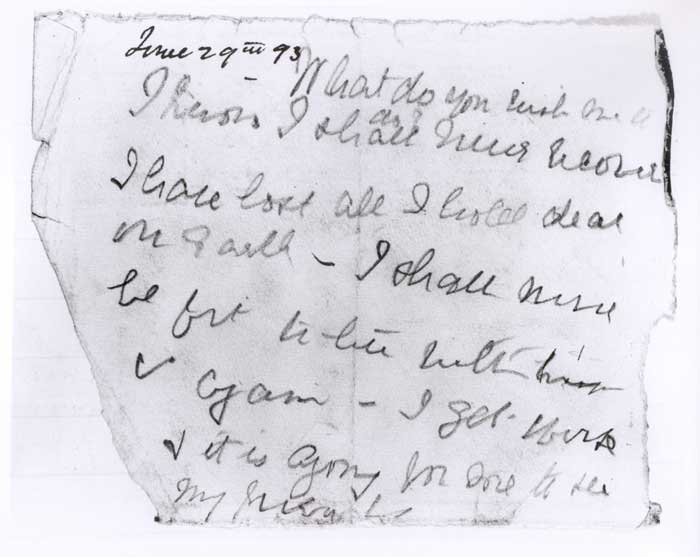 June 29th 93
What do you wish me to
do?
I know I shall never recover
I have lost all I hold dear
on Earth - I shall never
be fit to live with him
again - I get worse
& it is agony for me to see
my friends